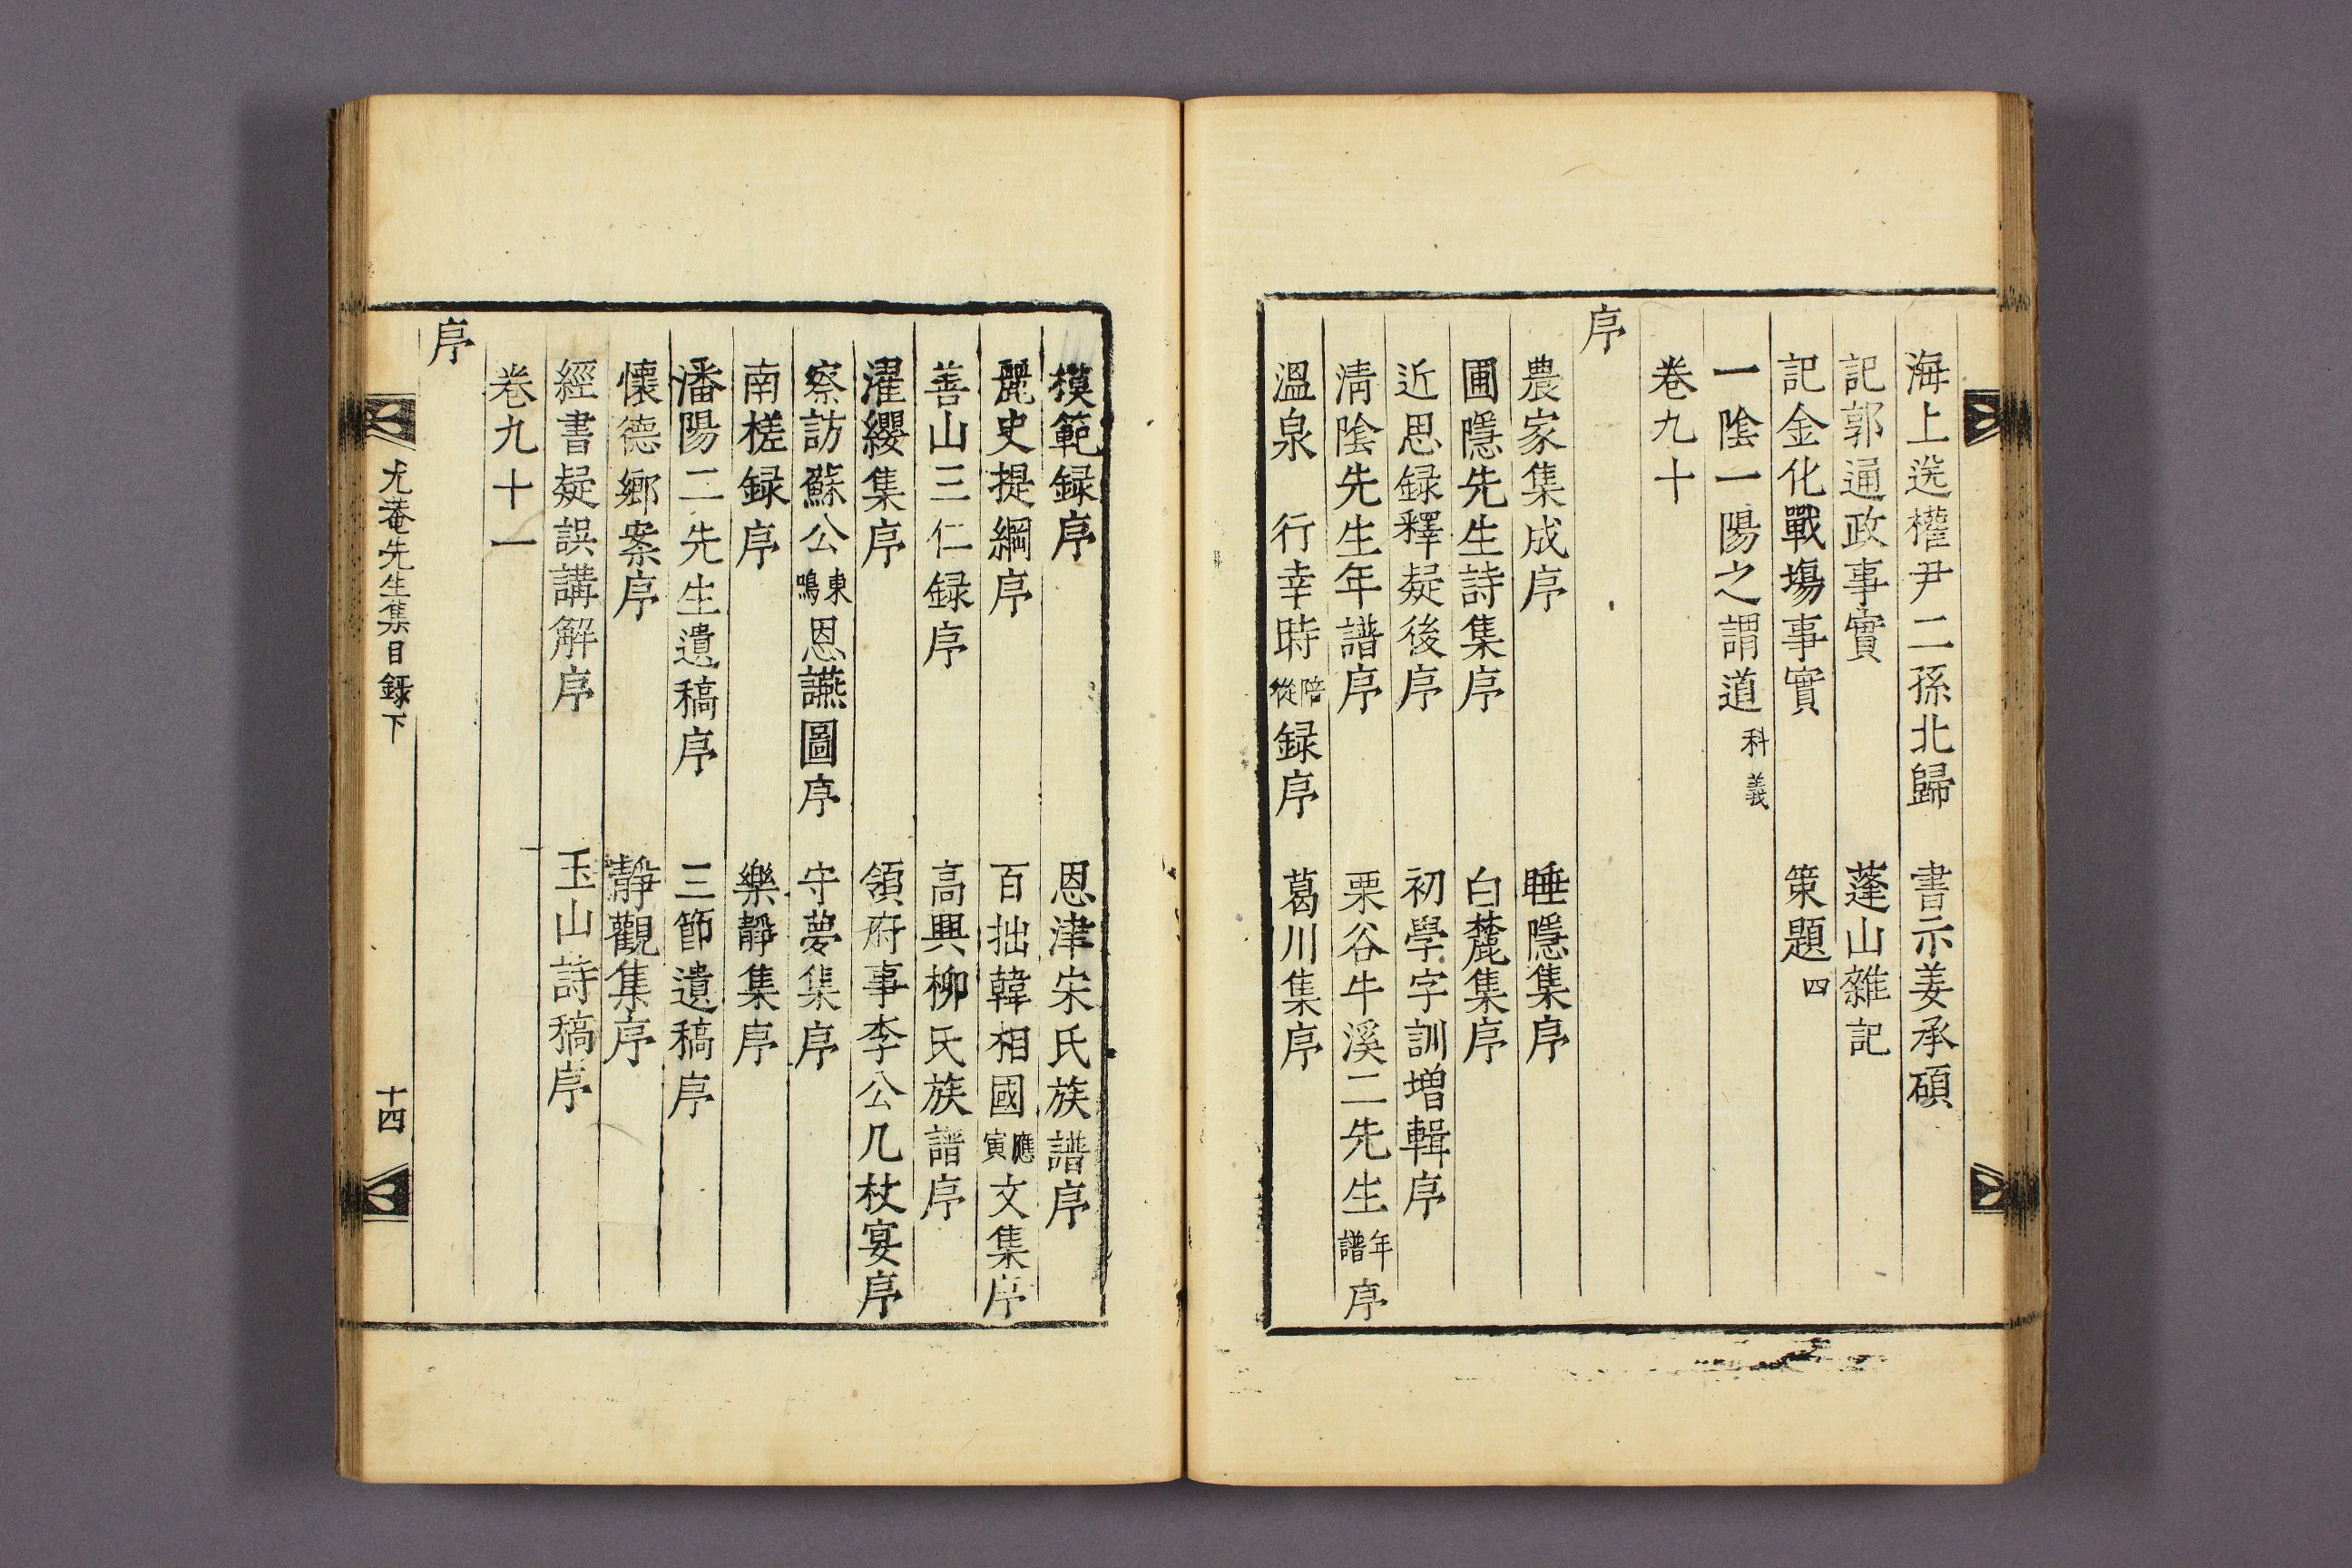 海上送權尹二孫北歸　書示姜承碩
記郭通政事實　蓬山雜記
記金化戰場事實　策題四
一陰一陽之謂道科義
卷九十
序
農家集成序　睡隱集序
圃隱先生詩集序　白麓集序
近思録釋疑後序　初學字訓增輯序
淸陰先生年譜序　栗谷牛溪二先生年譜序
溫泉行幸時陪從録序　葛川集序
模範録序　恩津宋氏族譜序
麗史提綱序　百拙韓相國應寅文集序
善山三仁録序　高興柳氏族譜序
濯纓集序　領府事李公几杖宴序
察訪蘇公東鳴恩讌圖序　守夢集序
南槎録序　樂靜集序
潘陽二先生遺稿序　三節遺稿序
懷德鄉案序　靜觀集序
經書疑誤講解序　玉山詩稿序
卷九十一
序
尤菴先生集目録下　十四